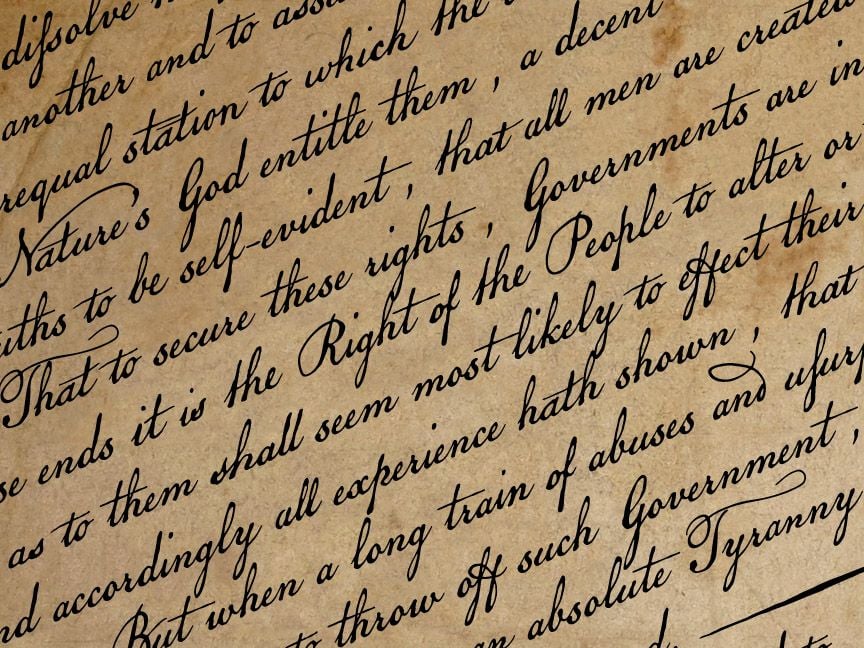 difsolve
another and to
equal station to which the
Nature's God entitle them, a decent
to be self-evident, that all men are created
That to secure these rights, Governments are in
ends it is the Right of the People to alter or
as to them shall seem most likely to effect their
accordingly all experience hath shown, that
But when a long train of abuses and ufurp
to throw off such Government,
an absolute Tyranny